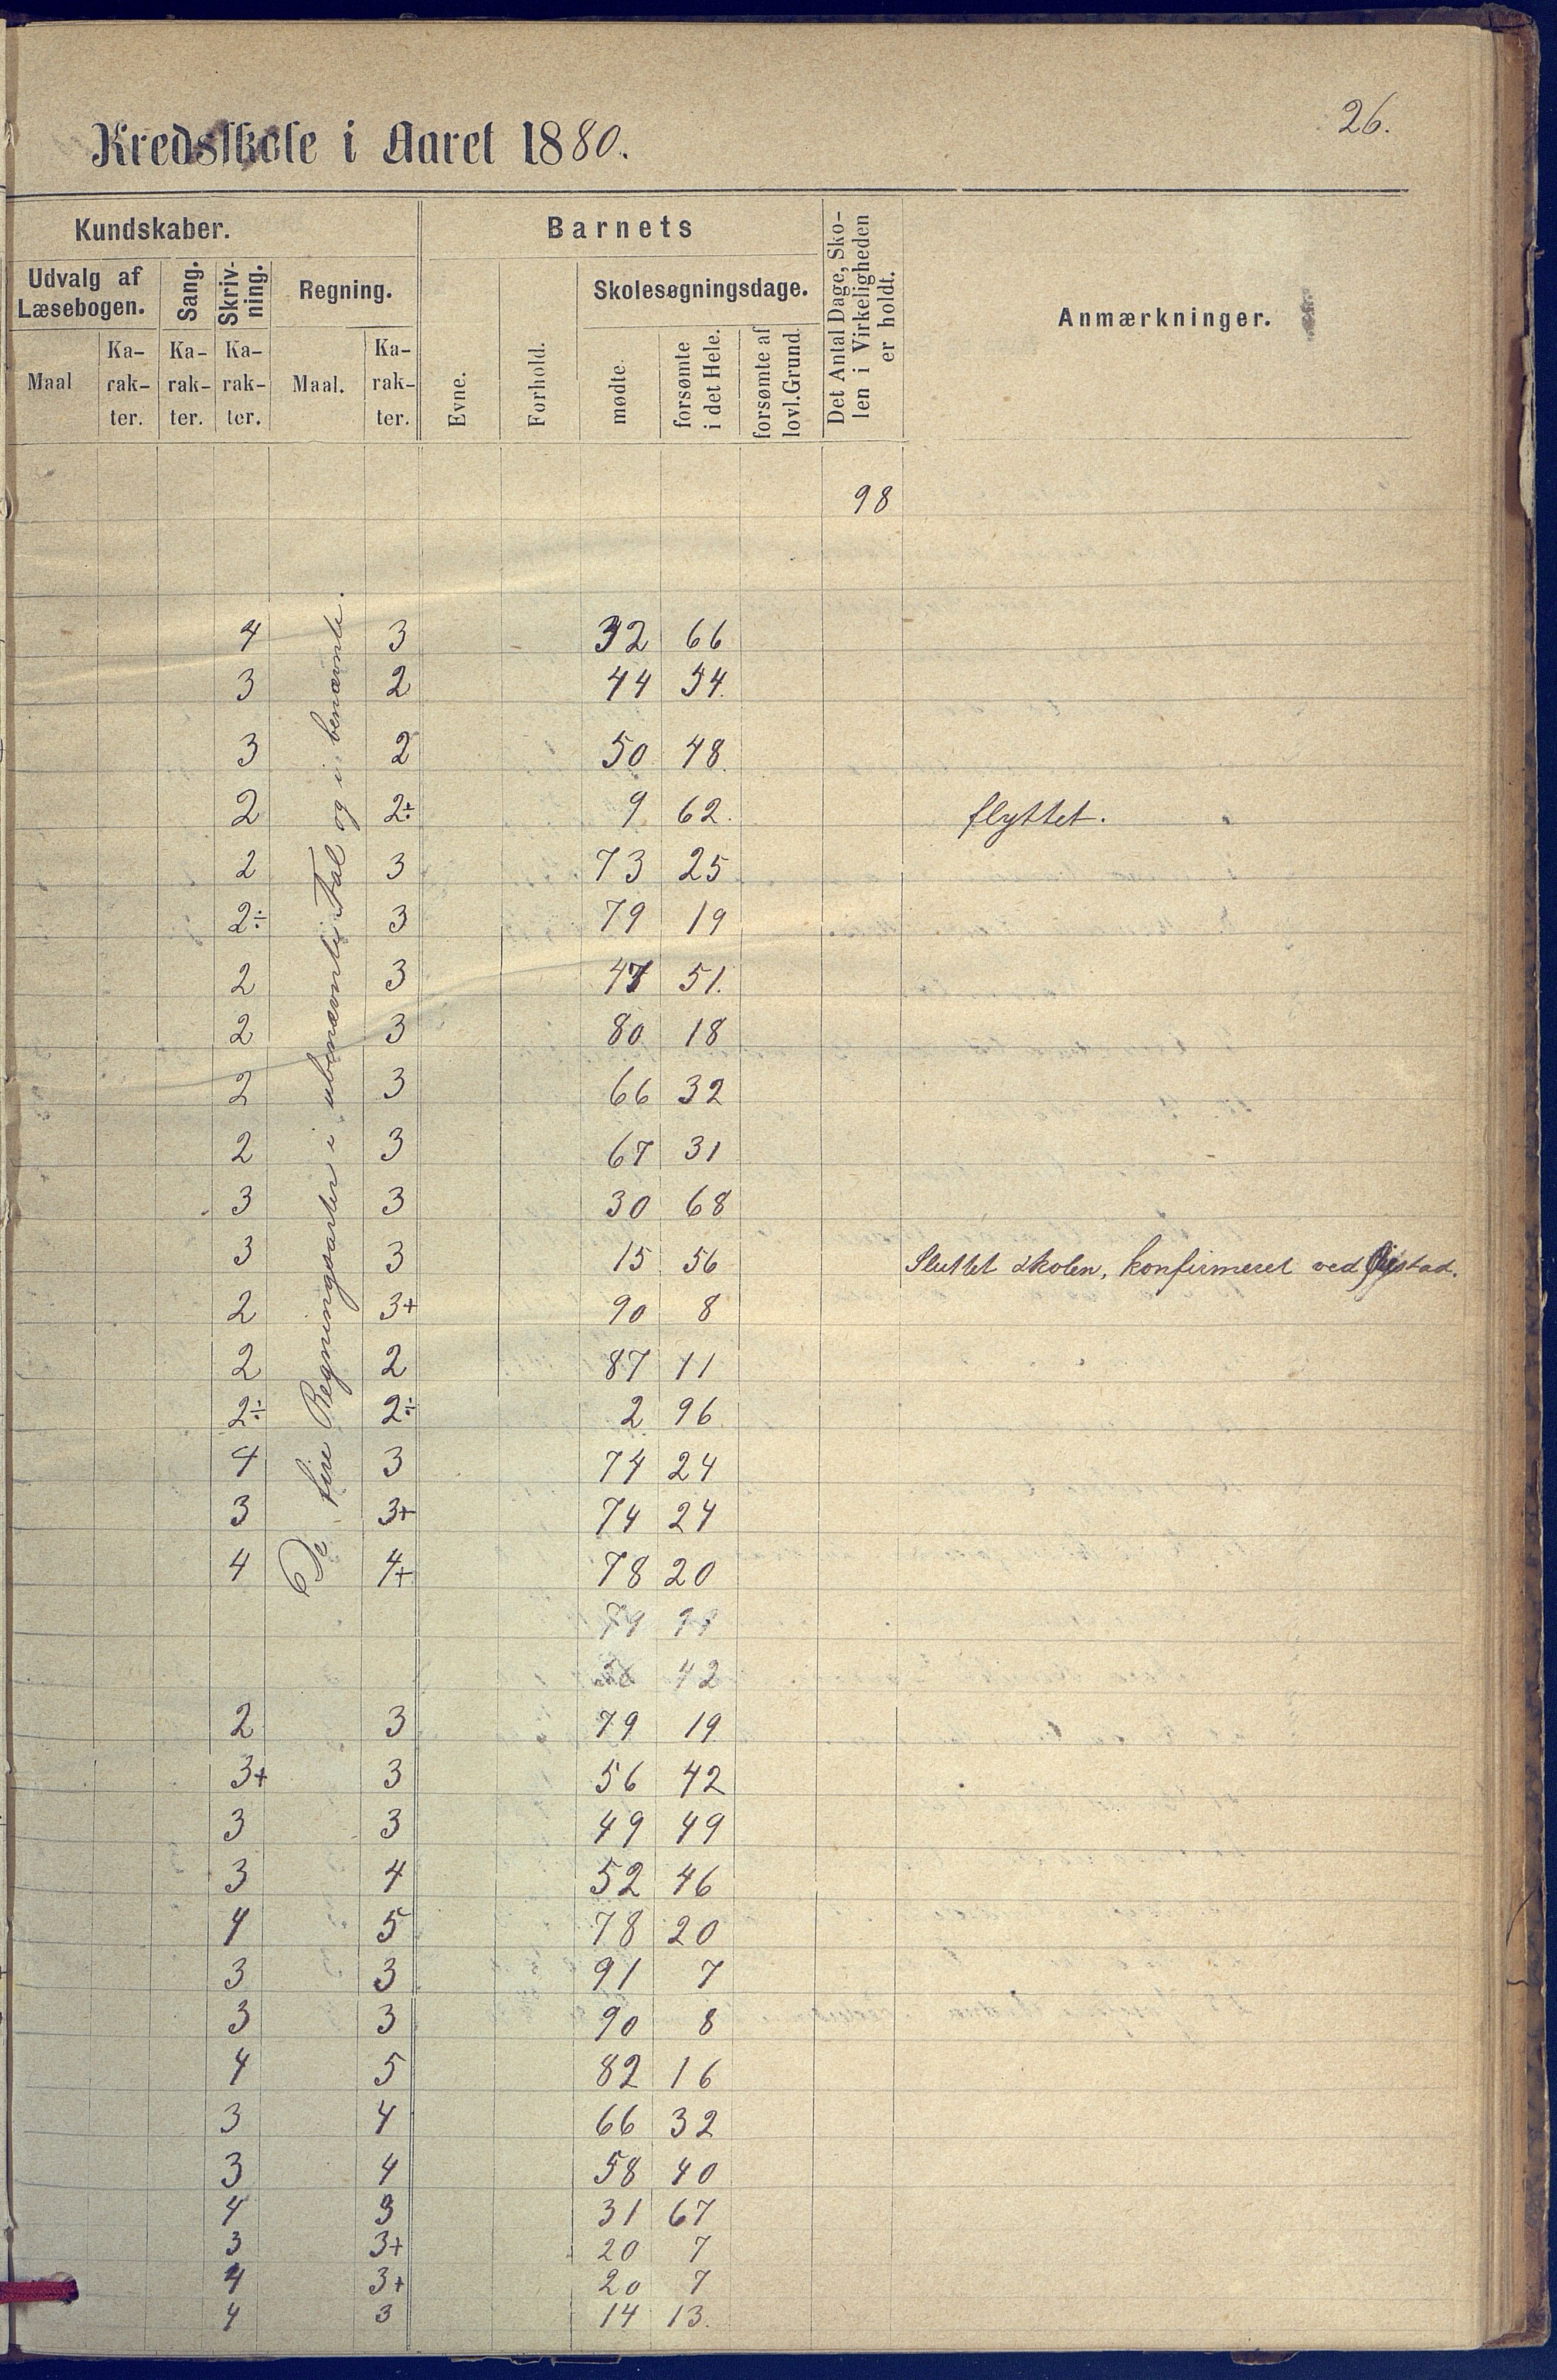 26.
Kredsskole i Aaret 1880.
Kundskaber. Barnets Det Antal Dage, Sko-
len i Virkeligheden
er holdt. Anmærkninger.
Udvalg af
Læsebogen. Sang. Skriv-
ning. Regning. Evne. Forhold. Skolesøgningsdage.
Maal Ka-
rak-
ter. Ka-
rak-
ter. Ka-
rak-
ter. Maal. Ka-
rak-
ter. mødte. forsømte
i det Hele. forsømte af
lovl. Grund.
98
De fire Regningsarter i ubenævnte Tal og i benævnte.
4 3 32 66
3 2 44 54.
3 2 50 48.
2 2÷ 9 62. flyttet.
2 3 73 25
2÷ 3 79 19
2 3 47 51.
2 3 80 18
2 3 66 32
2 3 67 31
3 3 30 68
3 3 15 56 Sluttet skolen, konfirmeret ved
2 3+ 90 8
2 2 87 11
2÷ 2÷ 2 96
4 3 74 24
3 3+ 74 24
4 4+ 78 20
42
2 3 79 19
3+ 3 56 42
3 3 49 49
3 4 52 46
4 5 78 20
3 3 91 7
3 3 90 8
4 5 82 16
3 4 66 32
3 4 58 40
4 3 31 67
3 3+ 20 7
4 3+ 20 7
4 3 14 13.